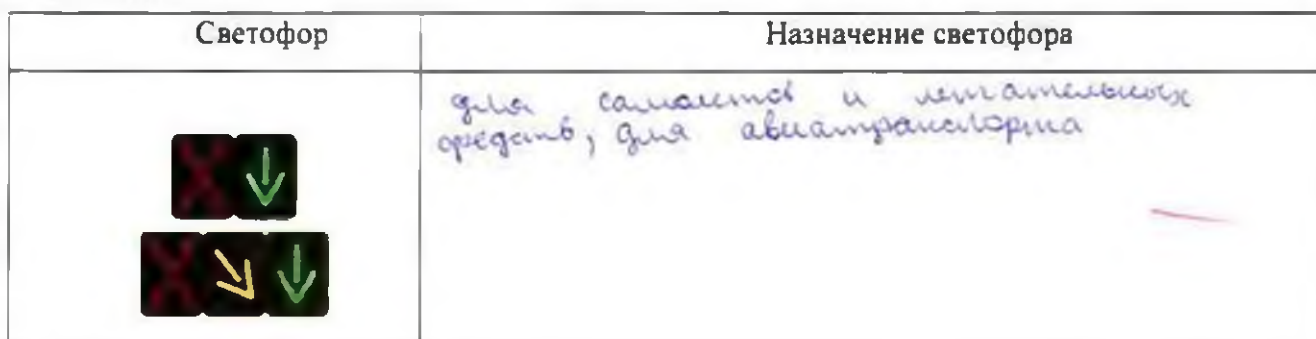 Светофор
Назначение светофора
для самолетов и летательных
средств, для авиатранспорта